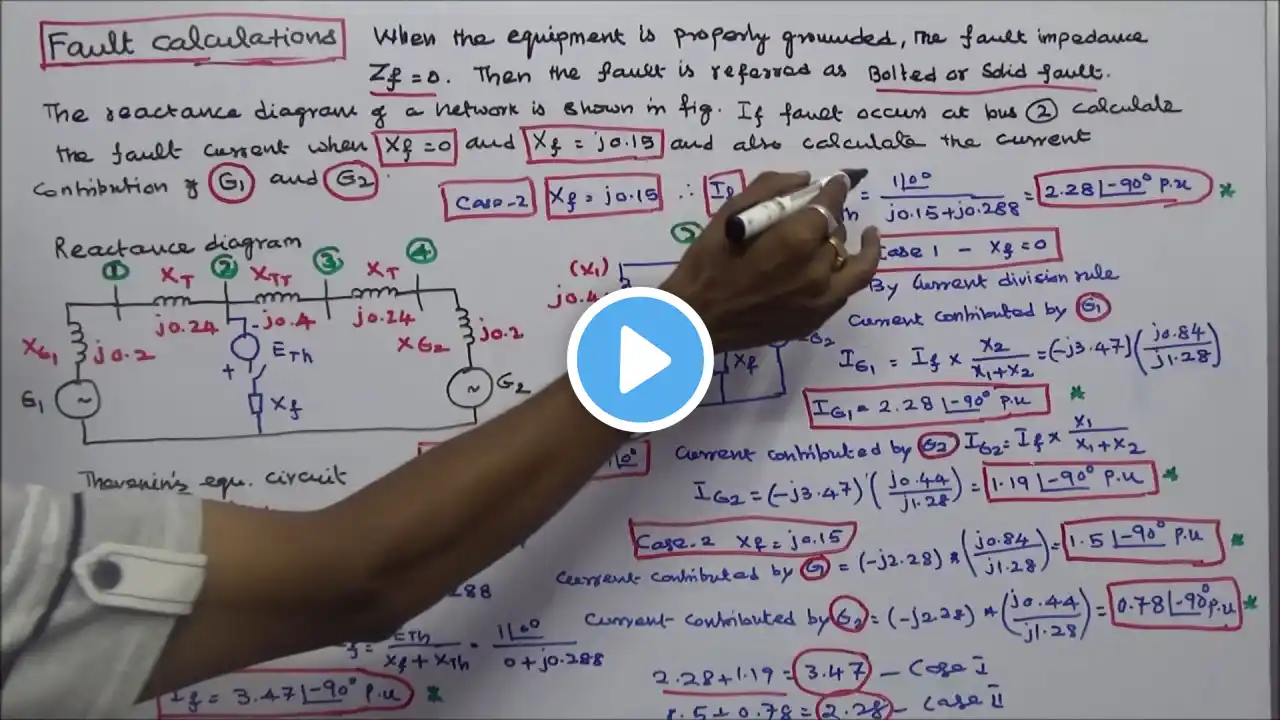 Fault calculations When the equipment is properly grounded, the fault impedance
Zf = 0. Then the fault is referred as Bolted or Solid fault.
The reactance diagram of a network is shown in fig. If fault occurs at bus ② calculate
the fault current when Xf = 0 and Xf = j0.15 and also calculate the current
contribution of G1 and G2.
Case-2 Xf = j0.15 ∴ If = 1∠0° / j0.15+j0.288 = 2.28∠-90° P.u *
Reactance diagram
① ② ③ ④
XT XTr XT
j0.24 j0.4 j0.24
XG1 j0.2
XG2 j0.2
ETh
- +
Xf
G1 ~
~ G2
②
(X1)
Xf
Case 1 - Xf = 0
By Current division rule
Current contributed by G1
IG1 = If × X2 / X1+X2 = (-j3.47) (j0.84 / j1.28)
IG1 = 2.28∠-90° P.u *
Current contributed by G2 IG2 = If × X1 / X1+X2
IG2 = (-j3.47) (j0.44 / j1.28) = 1.19∠-90° P.u *
Case-2 Xf = j0.15
Current contributed by G = (-j2.28) * (j0.84 / j1.28) = 1.5∠-90° P.u *
Current contributed by G2 = (-j2.28) * (j0.44 / j1.28) = 0.78∠-90° P.u *
2.28+1.19 = 3.47 - Case I
1.5+0.78 = 2.28 - Case II
Thevenin's equ. circuit
ETh / Xf + XTh = 1∠0° / 0+j0.288
If = 3.47∠-90° P.u *